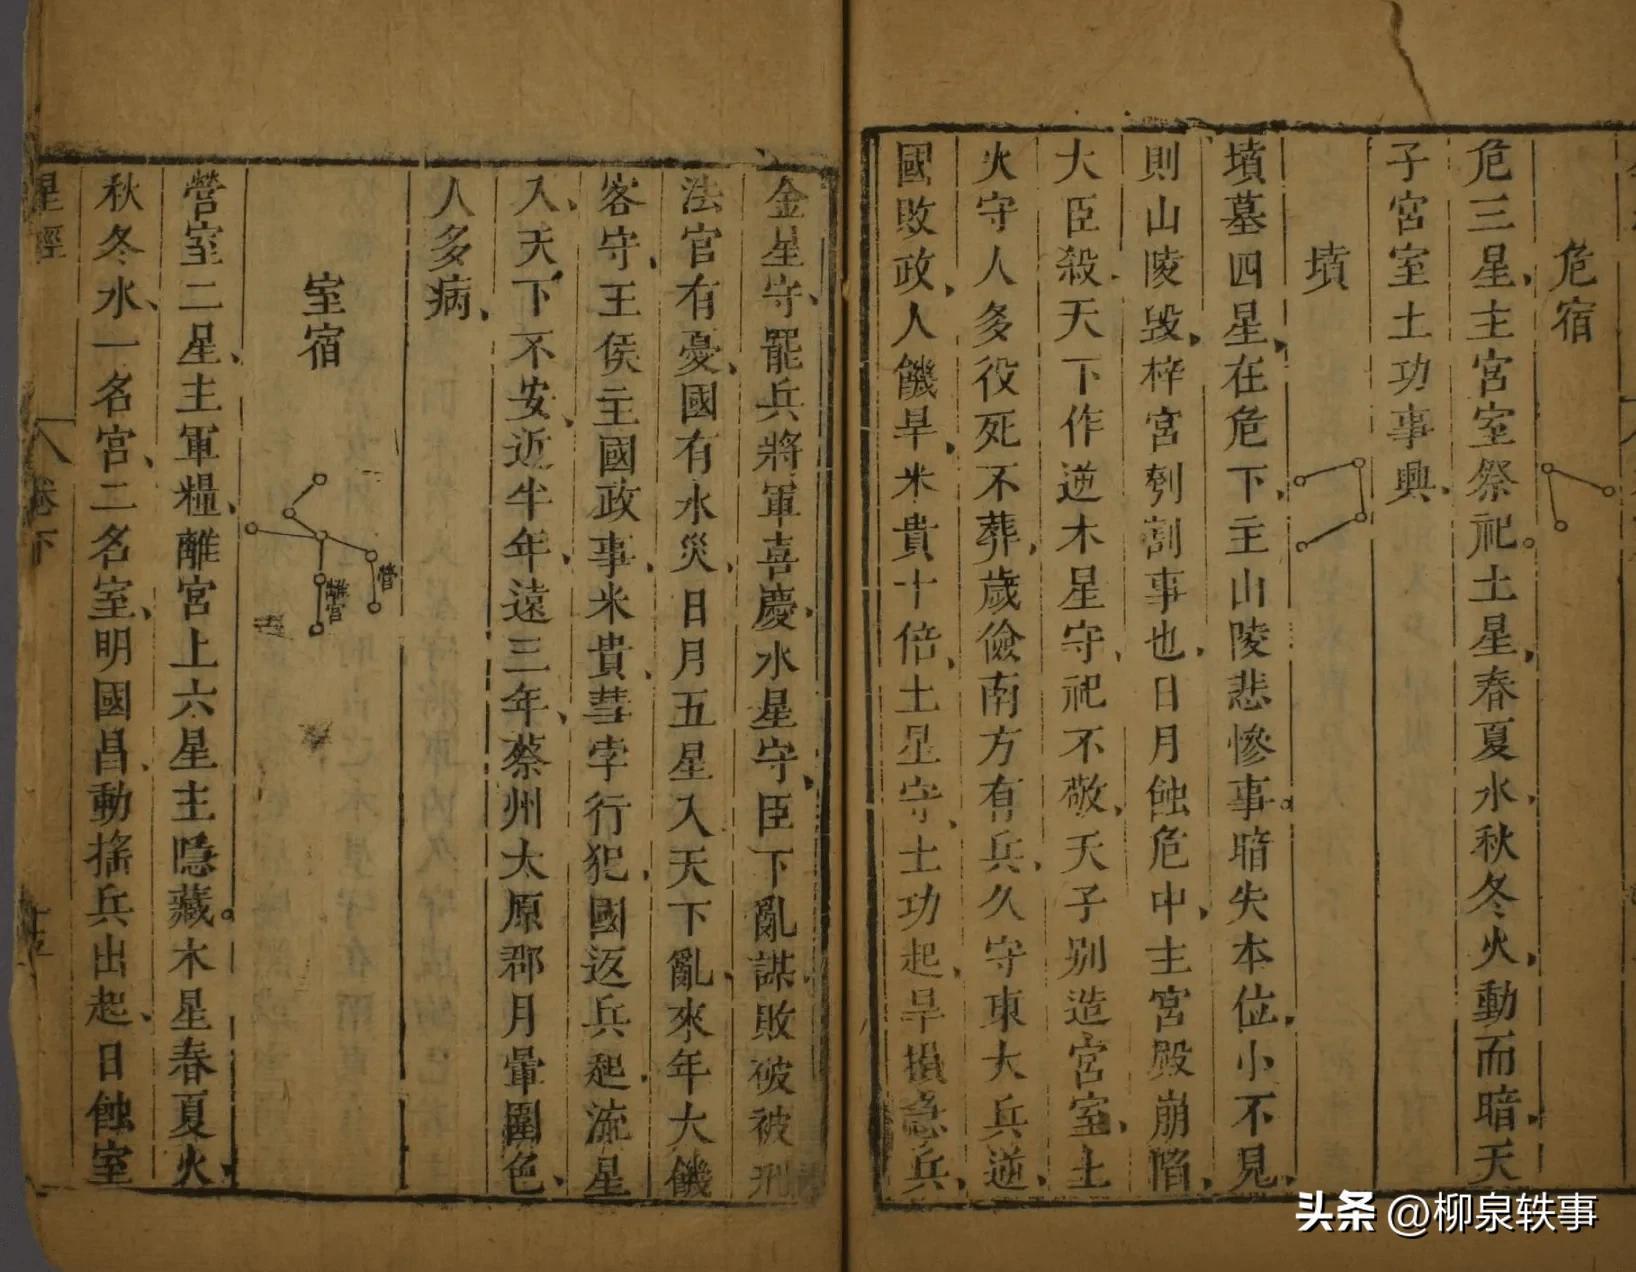 危宿
危三星、主宮室祭祀。土星、春夏水、秋冬火、動而暗、天
子宮室土功事興、
墳
墳墓四星、在危下、主山陵悲慘事。暗失本位、小不見、
則山陵毀、梓宮刳割事也、日月蝕危中、主宮殿崩陷、
大臣殺、天下作逆木星守、祀不敬、天子别造宮室、土
火守人多役死不葬、歲儉南方有兵、久守東大兵逆、
國敗政、人饑旱、米貴十倍、土星守、土功起、旱損急兵、
金星守、罷兵將軍喜慶、水星守、臣下亂謀敗被被刑
法官有憂、國有水災、日月五星入天下亂、來年大饑
客守、王侯主國政事、米貴、彗孛行犯、國返兵起、流星
入、天下不安、近半年、遠三年、蔡州太原郡月暈圍色、
人多病、
室宿
營
離宮
營室二星、主軍糧、離宮上六星主隱藏。木星春夏火、
秋冬水、一名宮、二名室、明國昌、動搖兵出起、日蝕室
星經
卷下
头条 @柳泉轶事